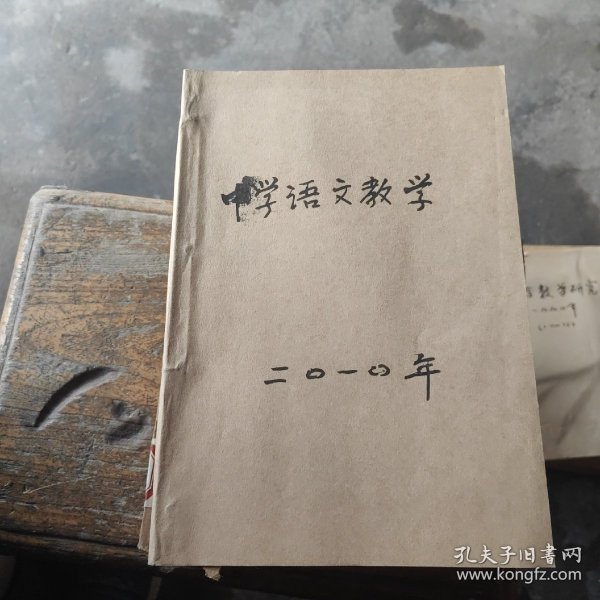 中学语文教学
二〇一〇年
教学研究
孔夫子旧书网
www.kongfz.com